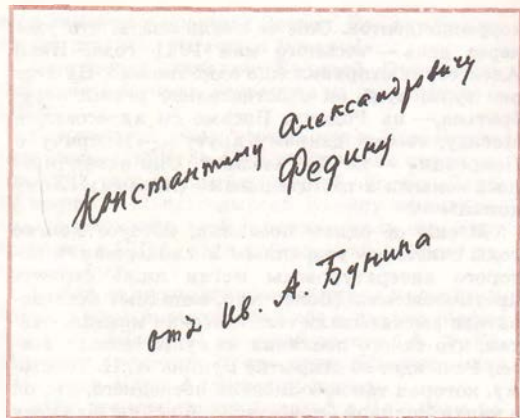 Константину Александровичу
Федину
отъ Ив. А. Бунина